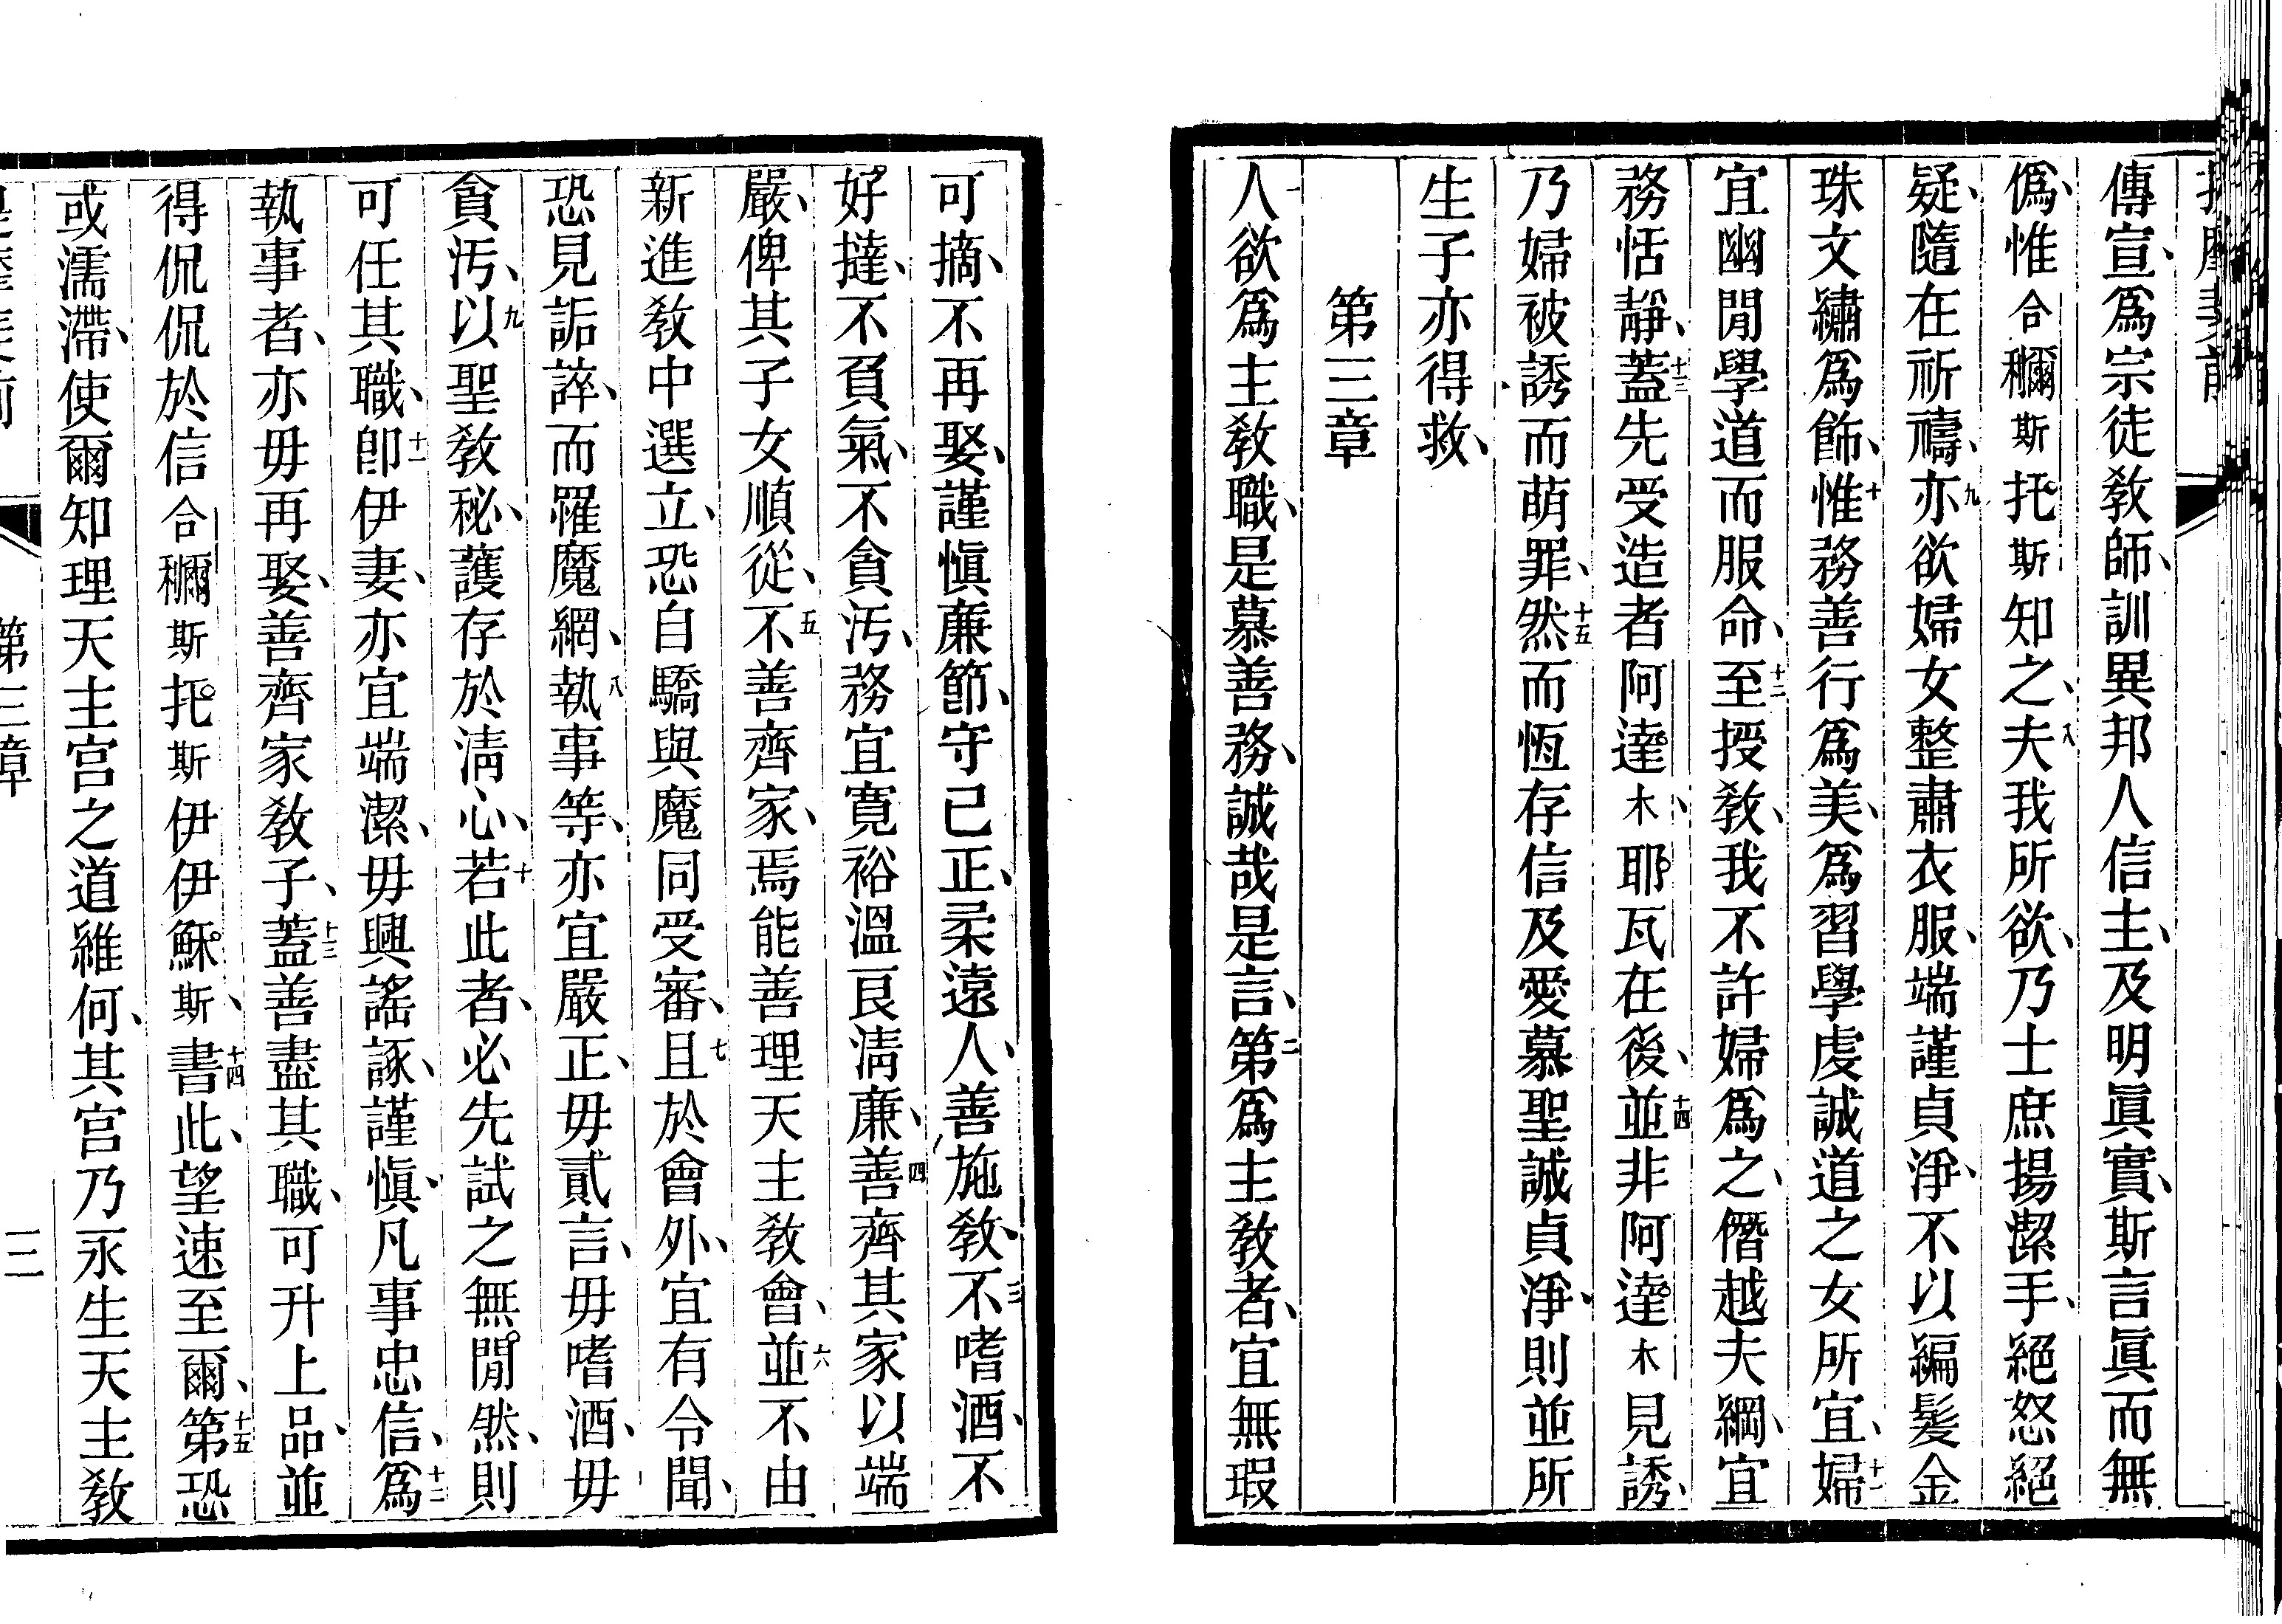 傳宣、爲宗徒教師、訓異邦人信主、及明眞實、斯言眞而無
僞、惟合穪斯托斯知之、八夫我所欲、乃士庶揚潔手、絕怒絕
疑、隨在祈禱、九亦欲婦女整肅衣服、端謹貞淨、不以編髮金
珠文繡爲飾、十惟務善行爲美、爲習學虔誠道之女所宜、十一婦
宜幽閒學道而服命、十二至授教、我不許婦爲之、僭越夫綱、宜
務恬靜、十三蓋先受造者阿達木、耶瓦在後、十四並非阿達木見誘、
乃婦被誘而萌罪、十五然而恆存信及愛慕聖誠貞淨、則並所
生子亦得救、
第三章
一人欲爲主教職、是慕善務、誠哉是言、二第爲主教者、宜無瑕
可摘、不再娶、謹愼廉節、守己正、柔遠人、善施教、三不嗜酒、不
好撻、不負氣、不貪汚、務宜寬裕溫良淸廉、四善齊其家以端
嚴、俾其子女順從、五不善齊家、焉能善理天主教會、六並不由
新進教中選立、恐自驕與魔同受審、七且於會外、宜有令聞、
恐見詬誶、而罹魔網、八執事等、亦宜嚴正、毋貳言、毋嗜酒、毋
貪汚、九以聖教秘、護存於淸心、十若此者、必先試之無閒然、則
可任其職、十一卽伊妻、亦宜端潔、毋興謠諑、謹愼、凡事忠信、十二爲
執事者、亦毋再娶、善齊家教子、十三蓋善盡其職、可升上品、並
得侃侃於信合穪斯托斯伊伊穌斯、十四書此、望速至爾、十五第恐
或濡滯、使爾知理天主宮之道維何、其宮乃永生天主教
第三章
三